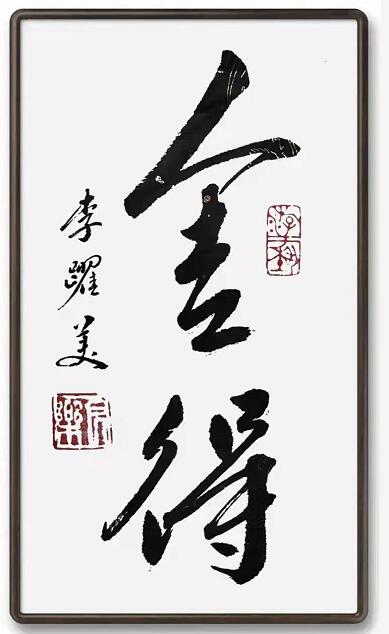 舍得
李躍美